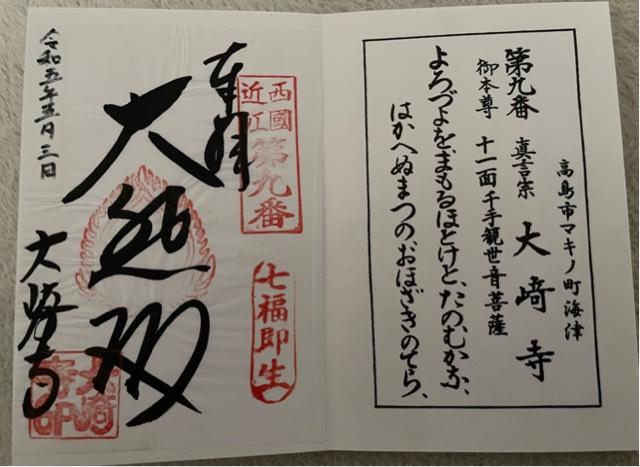 高島市マキノ町海津
第九番 真言宗 大﨑寺
御本尊 十一面千手観世音菩薩
よろづよを、まもるほとけと、たのむかな、
はかへぬまつのおほざきのてら、
西國
近江
第九番
七福即生
奉拝
大悲
大﨑寺
大﨑
寺印
令和五年五月三日